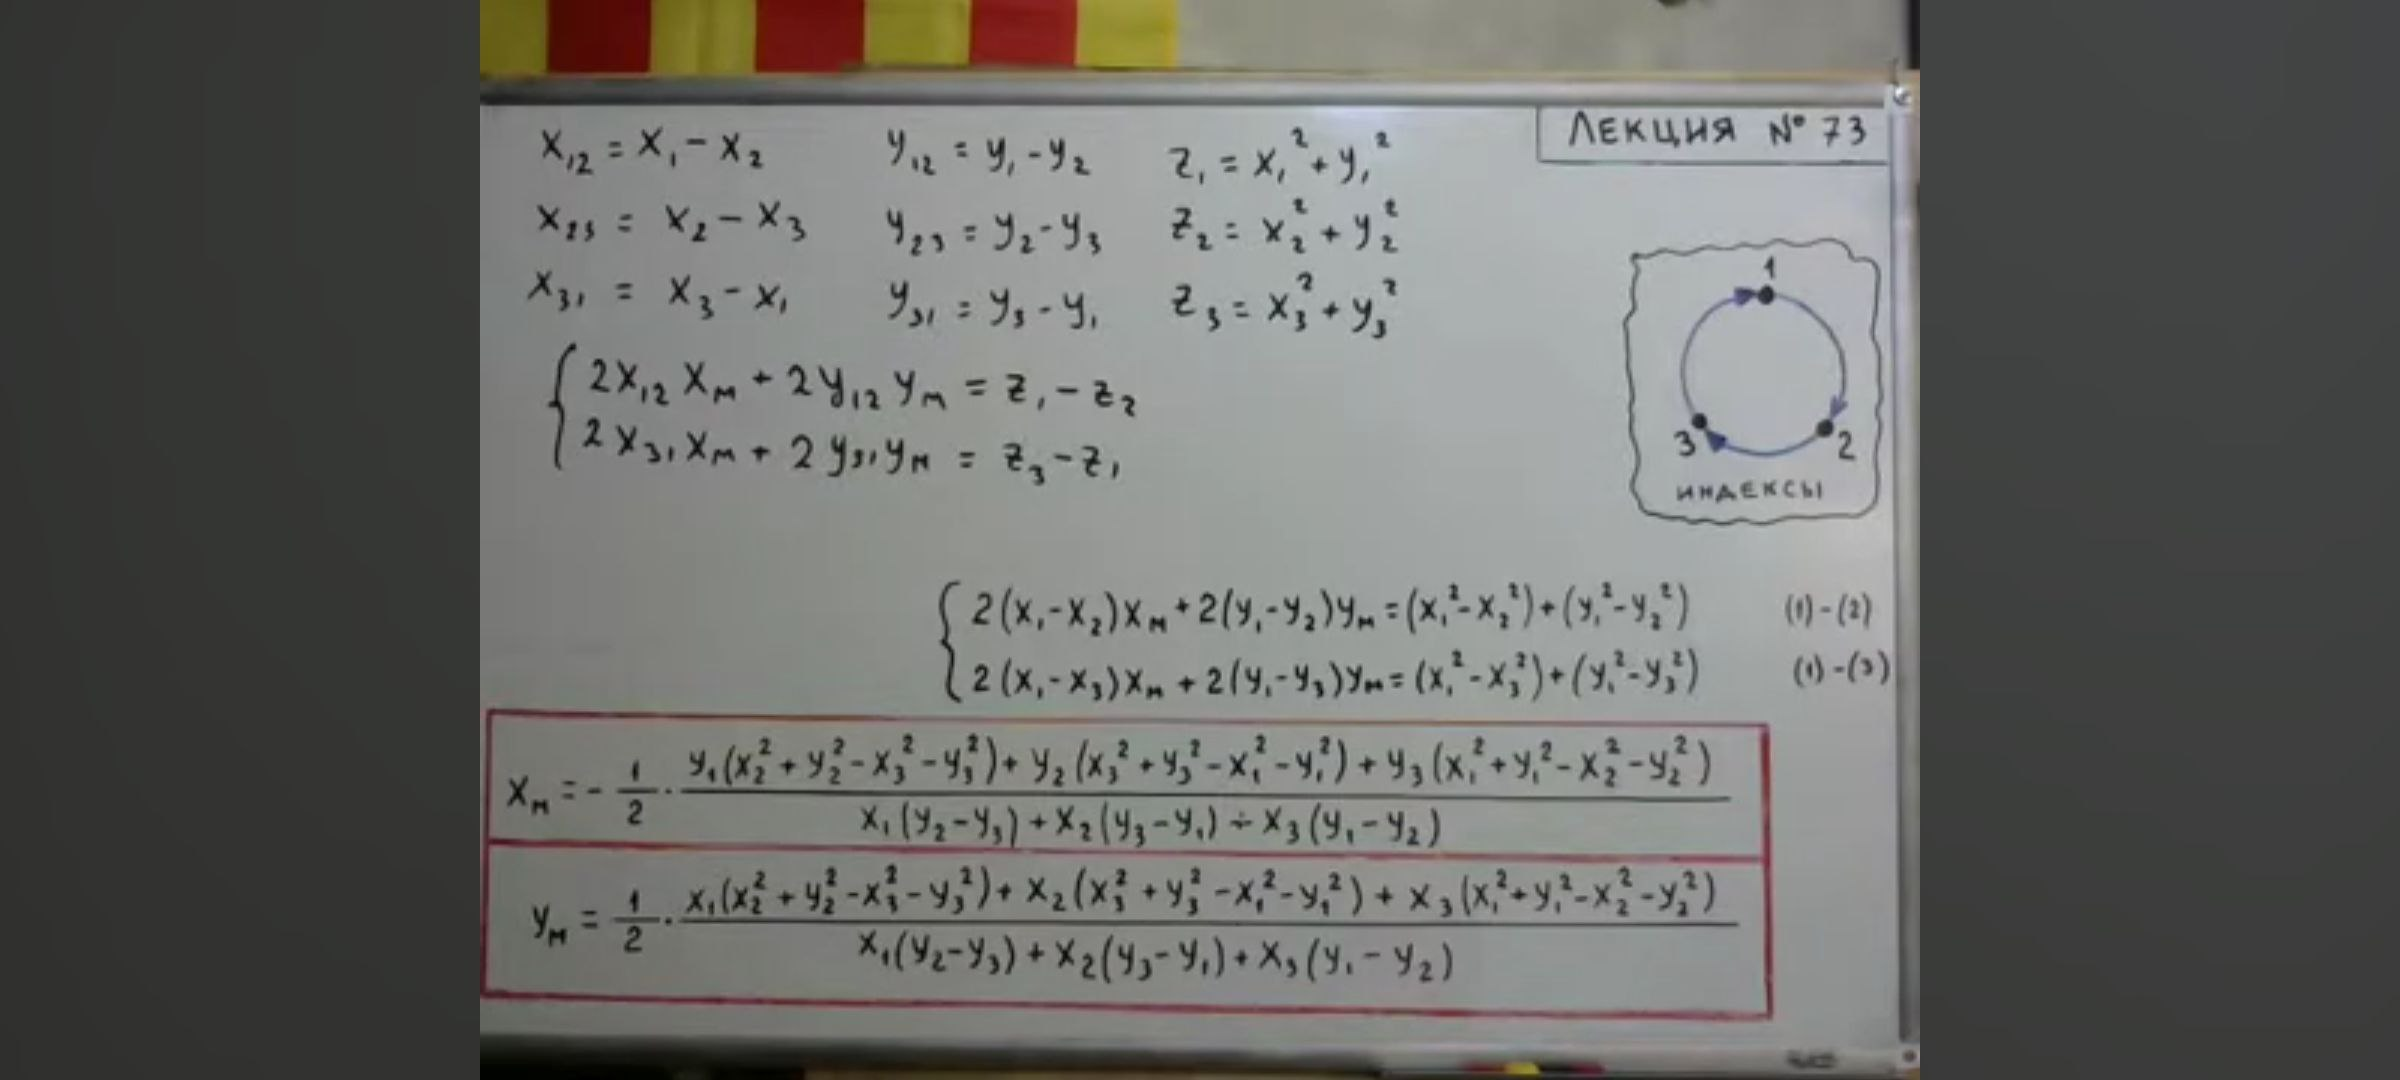 ЛЕКЦИЯ № 73
x₁₂ = x₁ - x₂ y₁₂ = y₁ - y₂ z₁ = x₁² + y₁²
x₂₃ = x₂ - x₃ y₂₃ = y₂ - y₃ z₂ = x₂² + y₂²
x₃₁ = x₃ - x₁ y₃₁ = y₃ - y₁ z₃ = x₃² + y₃²
{ 2x₁₂ xₘ + 2y₁₂ yₘ = z₁ - z₂
2x₃₁ xₘ + 2y₃₁ yₘ = z₃ - z₁
1
3 2
ИНДЕКСЫ
{ 2(x₁-x₂)xₘ + 2(y₁-y₂)yₘ = (x₁²-x₂²)+(y₁²-y₂²) (1)-(2)
2(x₁-x₃)xₘ + 2(y₁-y₃)yₘ = (x₁²-x₃²)+(y₁²-y₃²) (1)-(3)
xₘ = - 1/2 · (y₁(x₂²+y₂²-x₃²-y₃²)+y₂(x₃²+y₃²-x₁²-y₁²)+y₃(x₁²+y₁²-x₂²-y₂²)) / (x₁(y₂-y₃)+x₂(y₃-y₁)÷x₃(y₁-y₂))
yₘ = 1/2 · (x₁(x₂²+y₂²-x₃²-y₃²)+x₂(x₃²+y₃²-x₁²-y₁²)+x₃(x₁²+y₁²-x₂²-y₂²)) / (x₁(y₂-y₃)+x₂(y₃-y₁)+x₃(y₁-y₂))